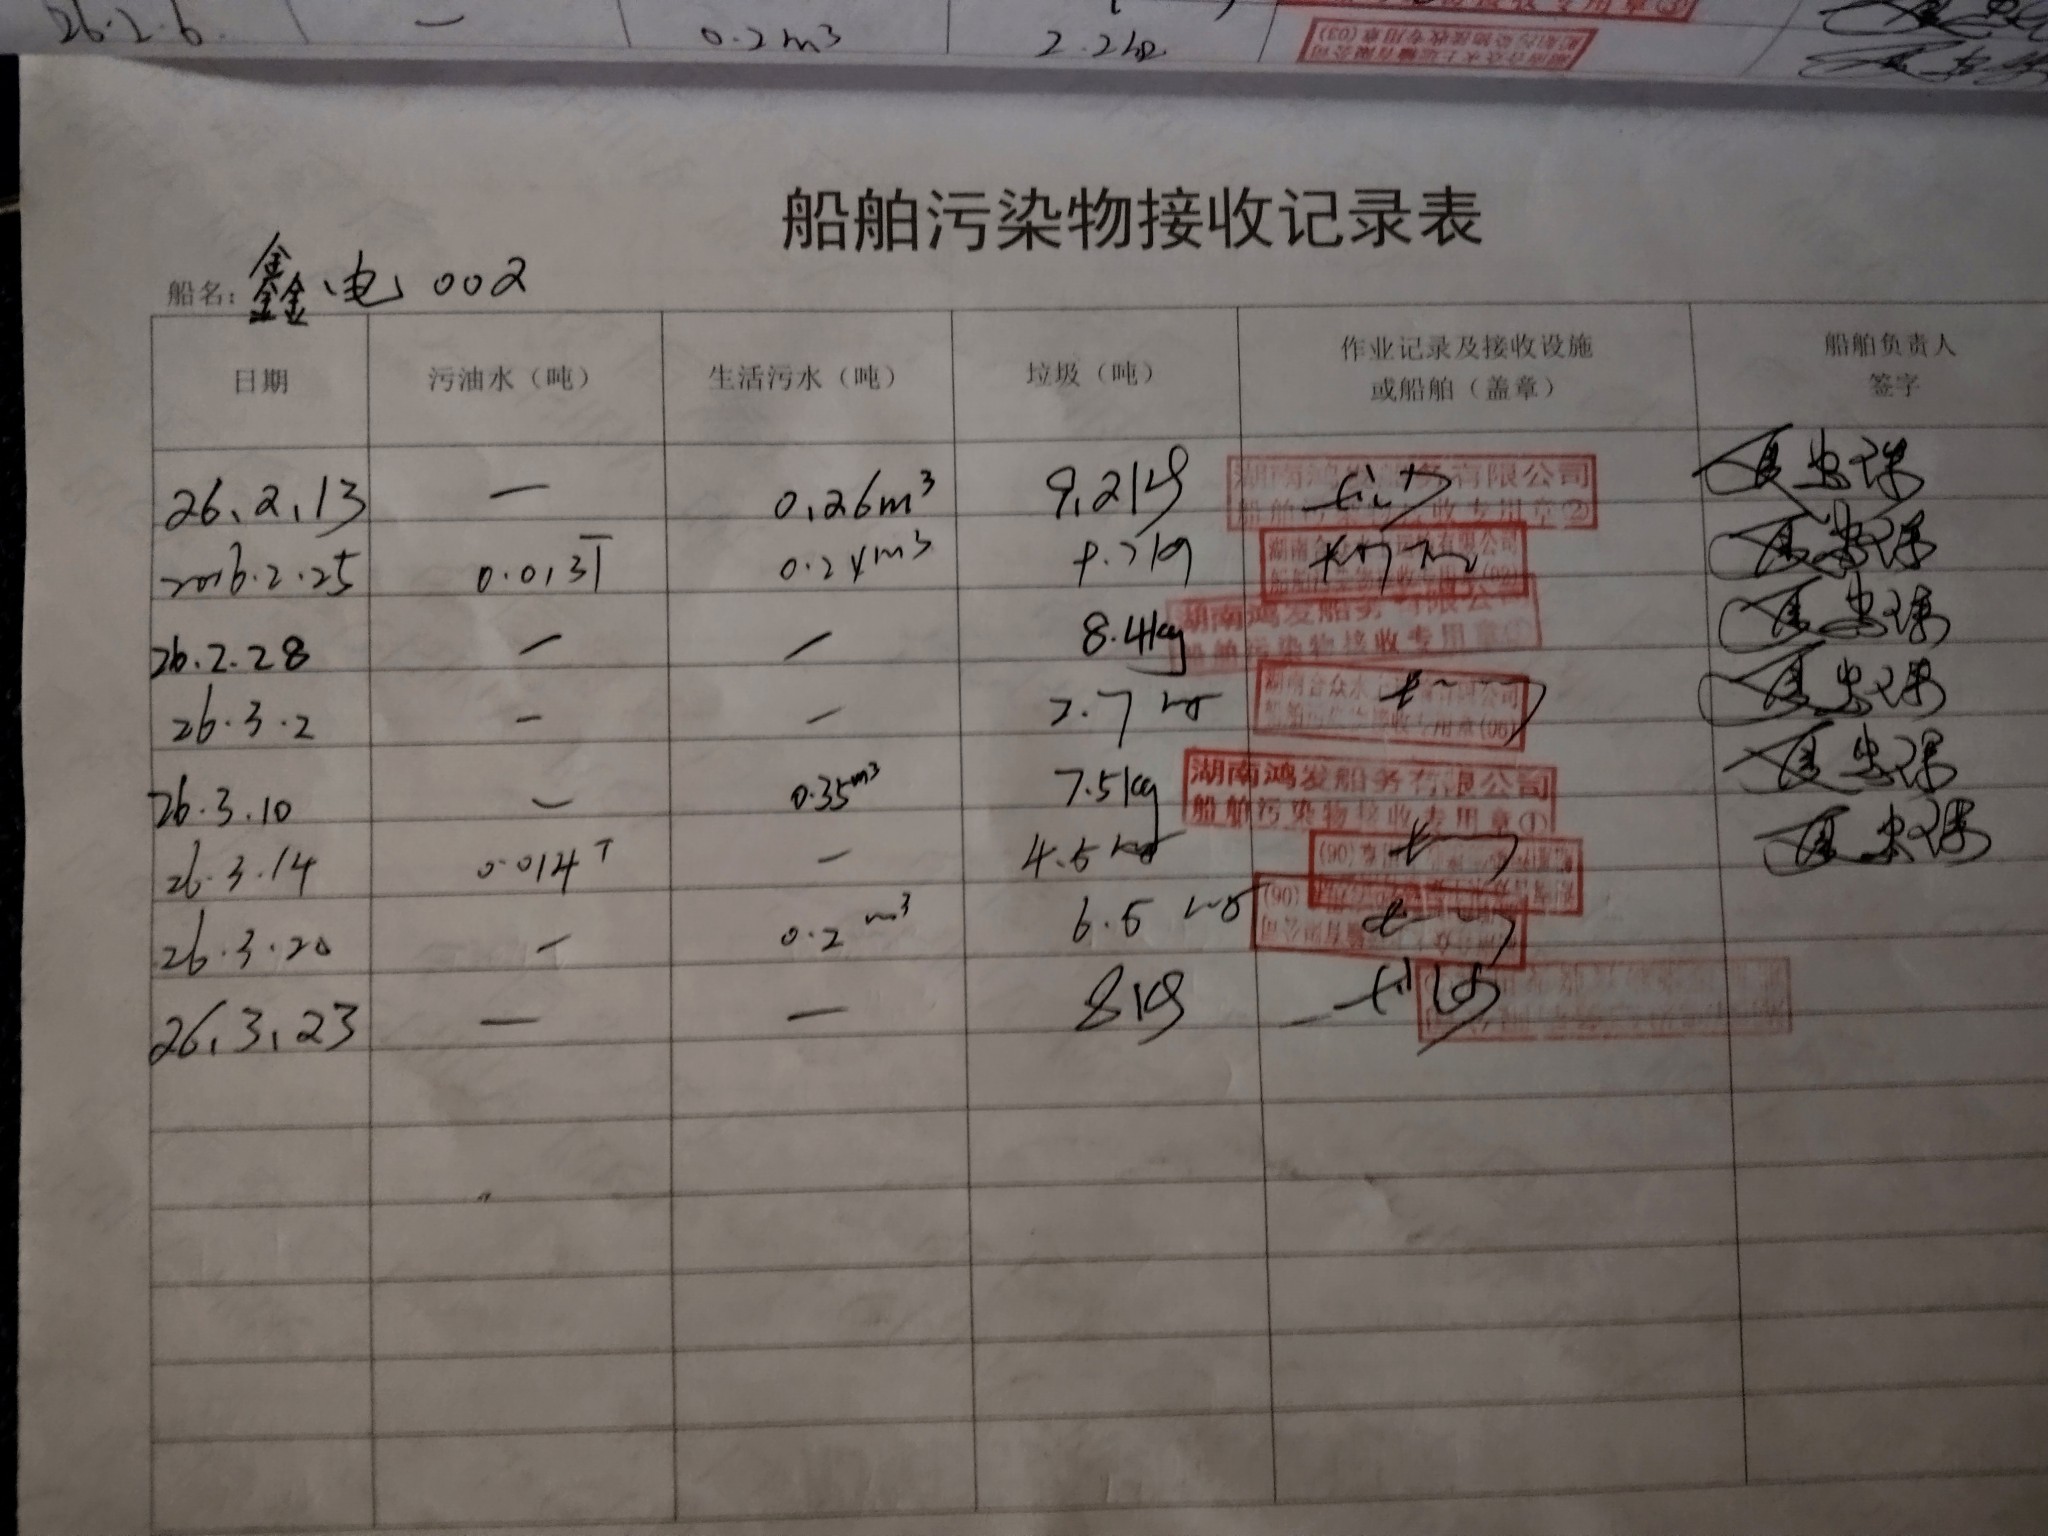 26.2.6. — 0.2m³ 2.2kg
湖南合众水上运输有限公司
船舶污染物接收专用章(03)
船舶污染物接收记录表
船名：鑫电002
日期 污油水（吨） 生活污水（吨） 垃圾（吨） 作业记录及接收设施或船舶（盖章） 船舶负责人签字
26.2.13 — 0.26m³ 9.2kg 湖南鸿发船务有限公司 船舶污染物接收专用章②
2026.2.25 0.013T 0.24m³ kg 湖南合众水上运输有限公司
26.2.28 — — 8.4kg 湖南鸿发船务有限公司 船舶污染物接收专用章
26.3.2 — — 2.7kg 湖南合众水上运输有限公司 船舶污染物接收专用章(06)
26.3.10 — 0.35m³ 7.5kg 湖南鸿发船务有限公司 船舶污染物接收专用章①
26.3.14 0.014T — 4.5kg (06)
26.3.20 — 0.2m³ 6.5kg (06)
26.3.23 — — 8kg